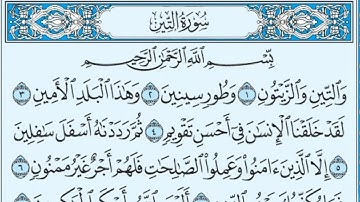 سُورَةُ التِّينِ
بِسْمِ اللَّهِ الرَّحْمَٰنِ الرَّحِيمِ
وَالتِّينِ وَالزَّيْتُونِ ١ وَطُورِ سِينِينَ ٢ وَهَٰذَا الْبَلَدِ الْأَمِينِ ٣
لَقَدْ خَلَقْنَا الْإِنسَٰنَ فِي أَحْسَنِ تَقْوِيمٍ ٤ ثُمَّ رَدَدْنَٰهُ أَسْفَلَ سَٰفِلِينَ
٥ إِلَّا الَّذِينَ ءَامَنُوا وَعَمِلُوا الصَّٰلِحَٰتِ فَلَهُمْ أَجْرٌ غَيْرُ مَمْنُونٍ ٦